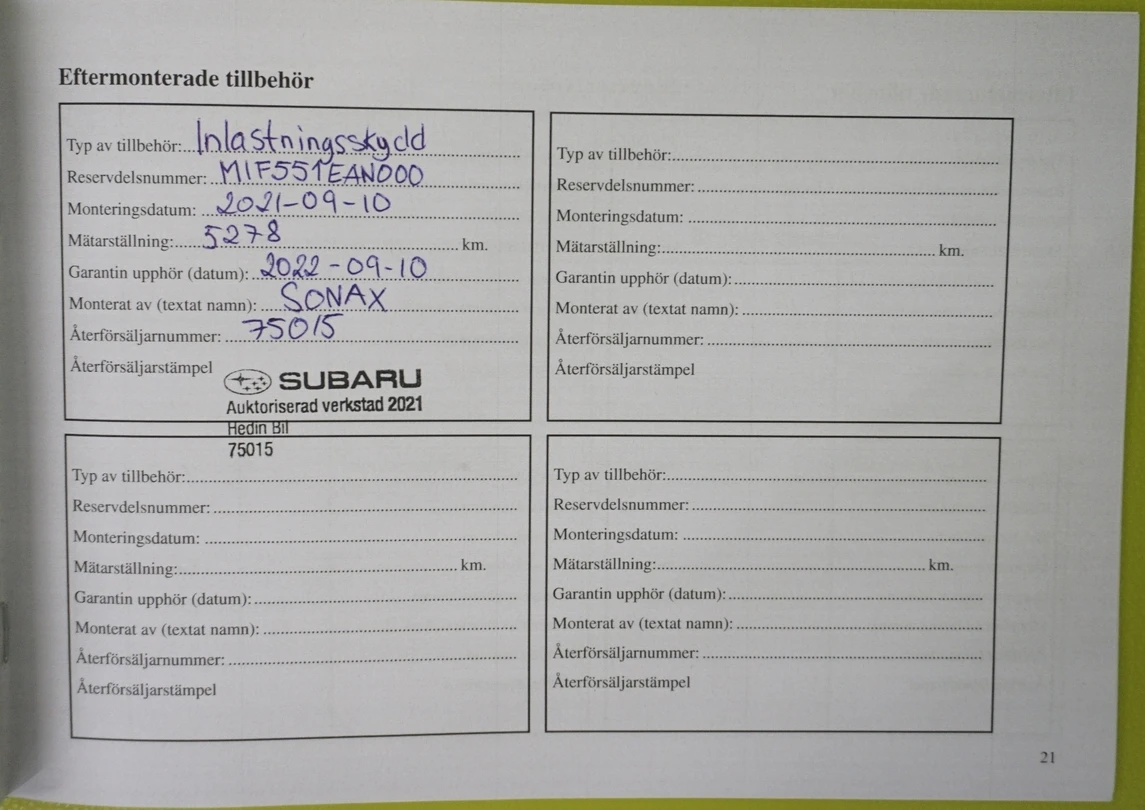 Eftermonterade tillbehör
Typ av tillbehör: Inlastningsskydd
Reservdelsnummer: M1F551EAN000
Monteringsdatum: 2021-09-10
Mätarställning: 5278 km.
Garantin upphör (datum): 2022-09-10
Monterat av (textat namn): SONAX
Återförsäljarnummer: 75015
Återförsäljarstämpel
SUBARU
Auktoriserad verkstad 2021
Hedin Bil
75015
Typ av tillbehör:
Reservdelsnummer:
Monteringsdatum:
Mätarställning: km.
Garantin upphör (datum):
Monterat av (textat namn):
Återförsäljarnummer:
Återförsäljarstämpel
Typ av tillbehör:
Reservdelsnummer:
Monteringsdatum:
Mätarställning: km.
Garantin upphör (datum):
Monterat av (textat namn):
Återförsäljarnummer:
Återförsäljarstämpel
Typ av tillbehör:
Reservdelsnummer:
Monteringsdatum:
Mätarställning: km.
Garantin upphör (datum):
Monterat av (textat namn):
Återförsäljarnummer:
Återförsäljarstämpel
21